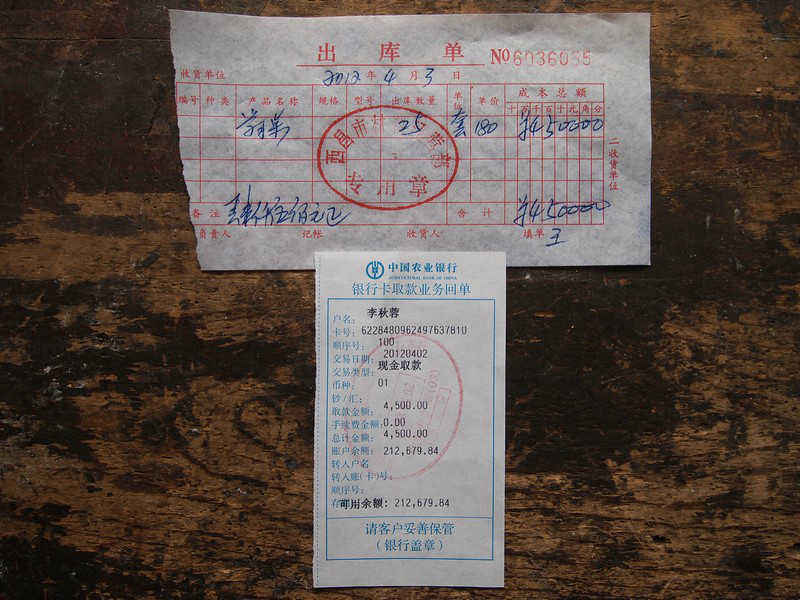 出 库 单
No 6036055
收货单位
2012 年 4 月 3 日
编号 种类 产品名称 规格 型号 出库数量 单位 单价 成本总额
十 万 千 百 十 元 角 分
25 套 180 ¥450000
西昌市
专用章
备注 肆仟伍佰元正 合计 ¥450000
负责人 记帐 收货人 填单 王
二收货单位
中国农业银行
AGRICULTURAL BANK OF CHINA
银行卡取款业务回单
户名: 李秋蓉
卡号: 6228480962497637810
顺序号: 100
交易日期: 20120402
交易类型: 现金取款
币种: 01
钞/汇:
取款金额: 4,500.00
手续费金额: 0.00
总计金额: 4,500.00
账户余额: 212,679.84
转入户名
转入账(卡)号:
顺序号:
可用余额: 212,679.84
请客户妥善保管
(银行盖章)